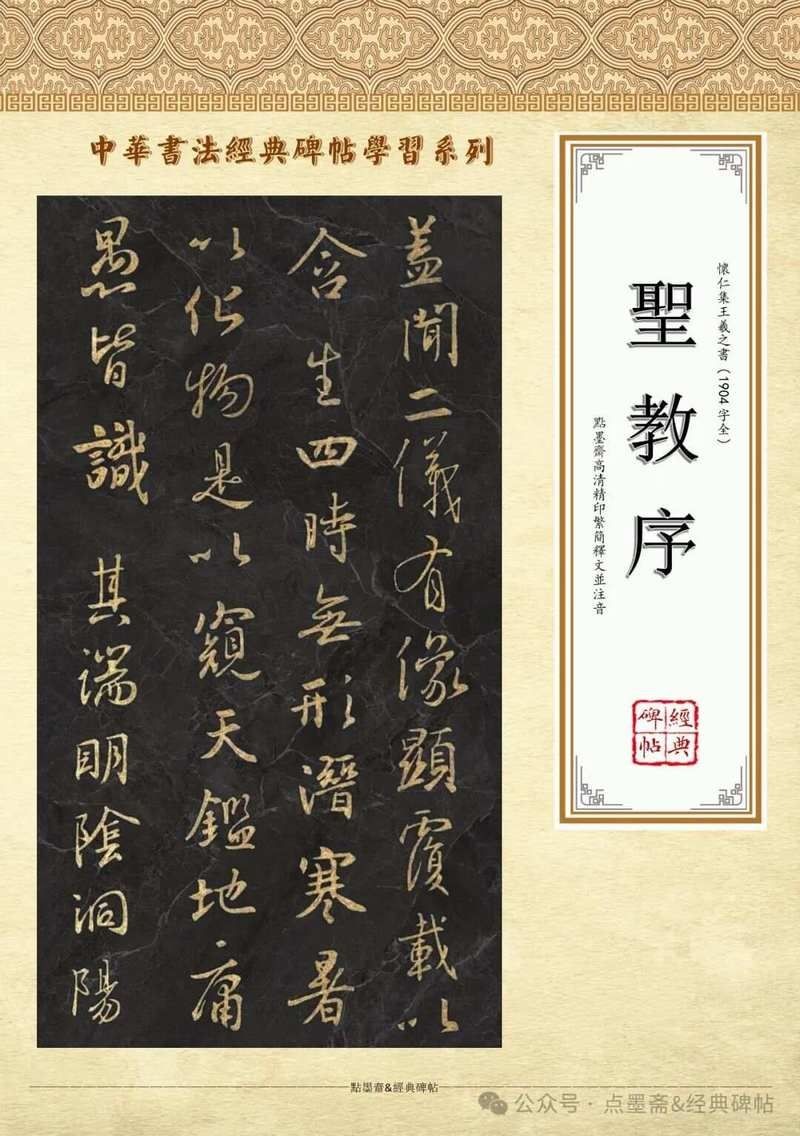 中華書法經典碑帖學習系列
懷仁集王羲之書（1904字全）
聖教序
點墨齋高清精印繁簡釋文並注音
經典
碑帖
蓋聞二儀有像顯覆載以
含生四時無形潛寒暑
以化物是以窺天鑑地庸
愚皆識其端明陰洞陽
點墨齋&經典碑帖
公众号·点墨斋&经典碑帖